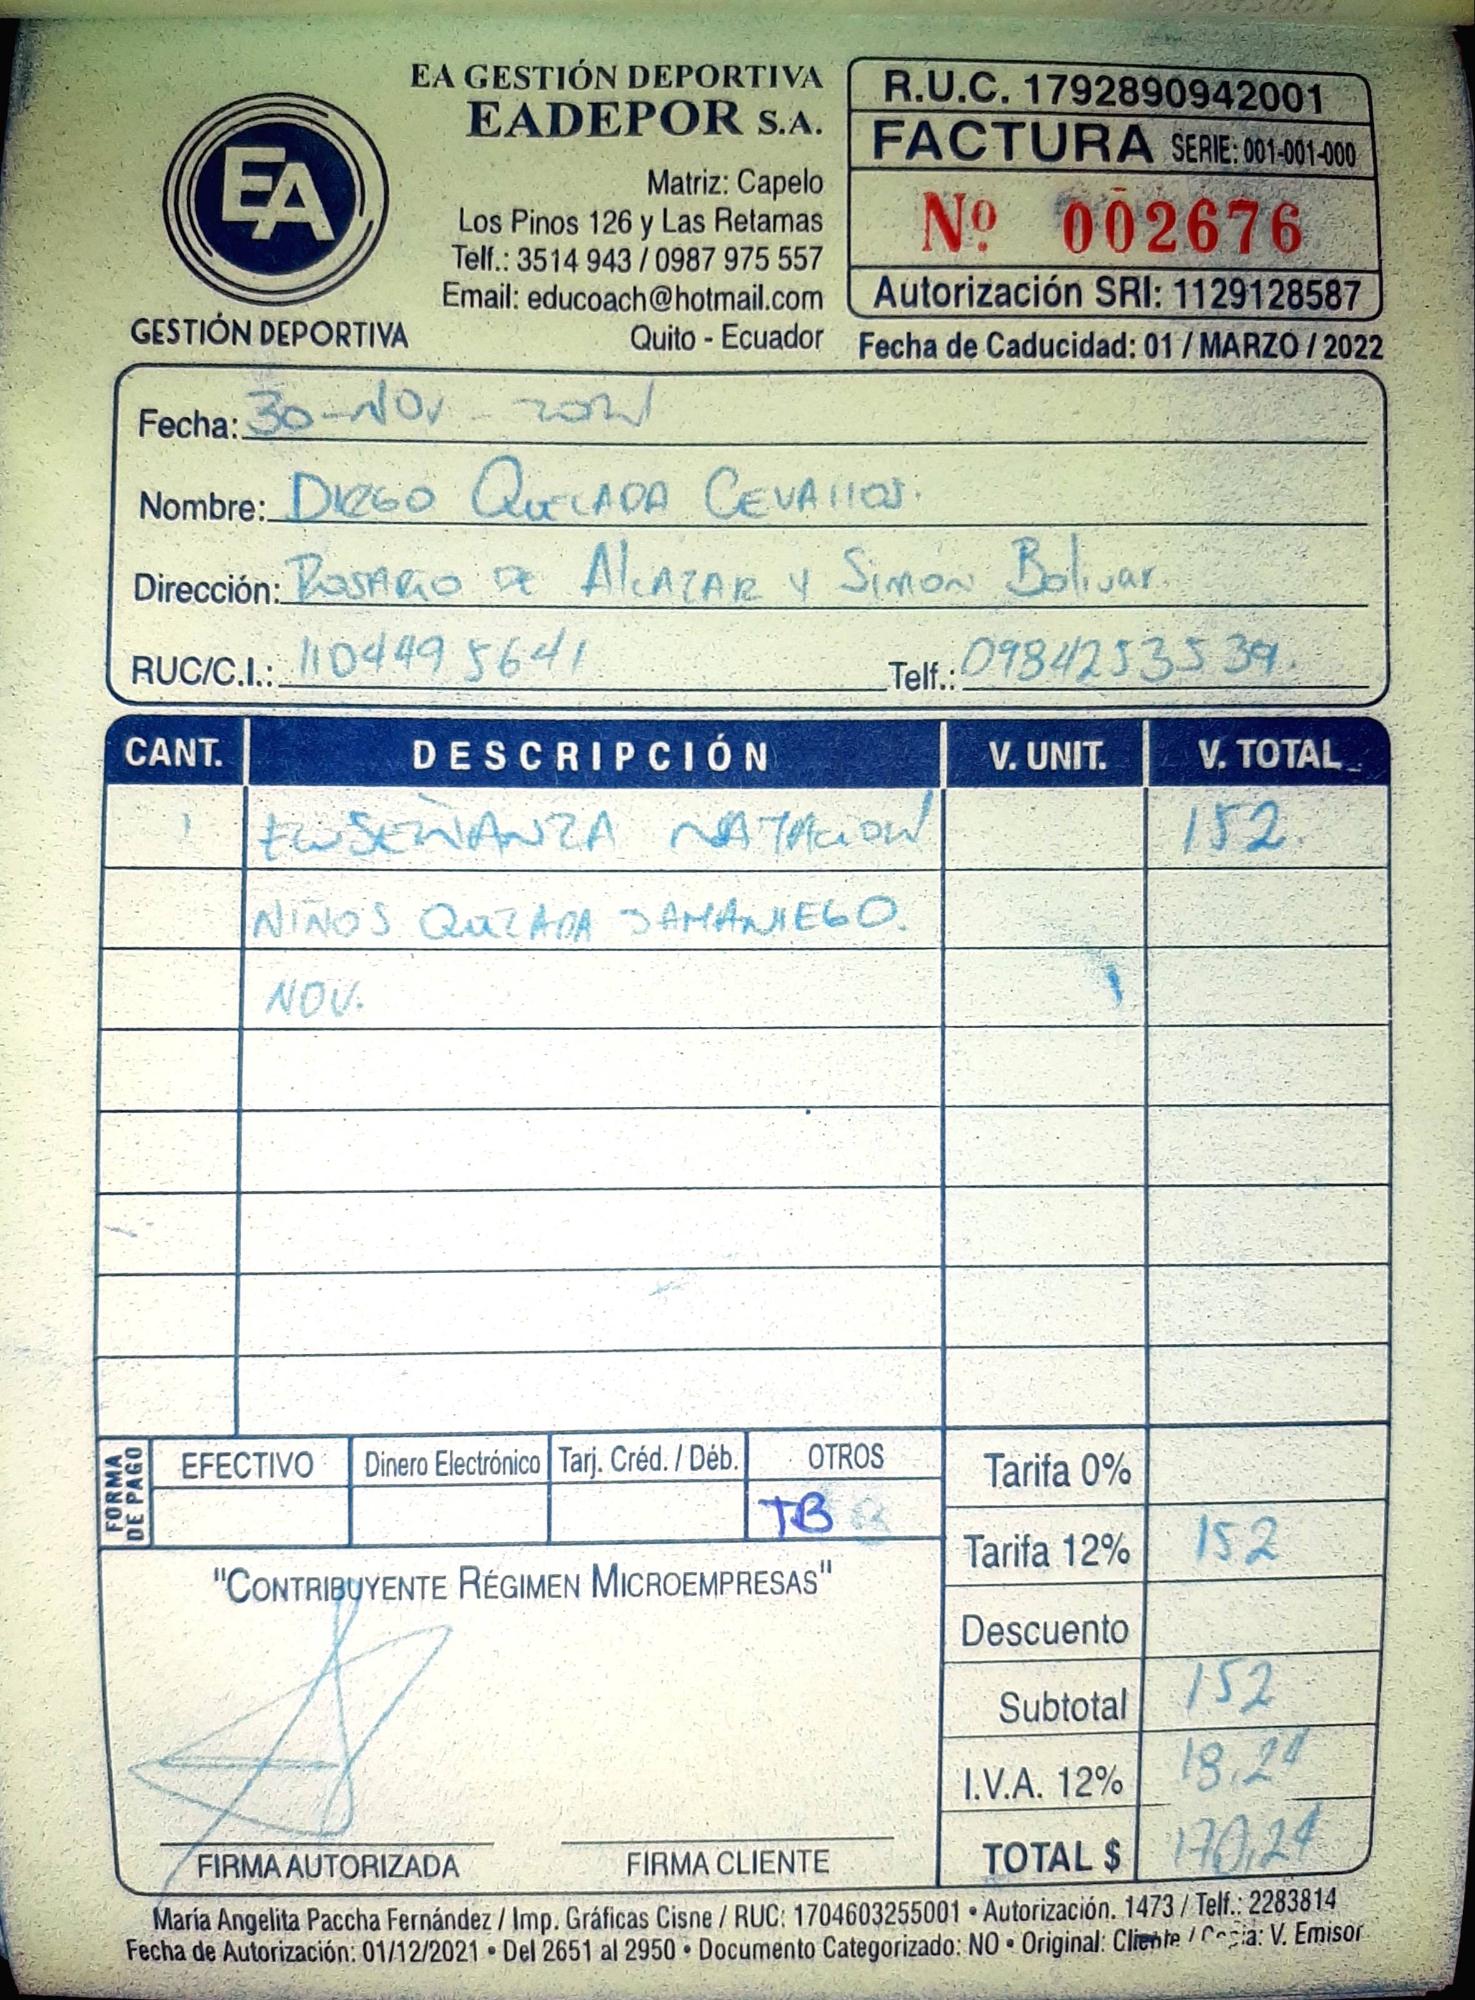 EA GESTIÓN DEPORTIVA
EADEPOR S.A.
Matriz: Capelo
Los Pinos 126 y Las Retamas
Telf.: 3514 943 / 0987 975 557
Email: educoach@hotmail.com
Quito - Ecuador
EA
GESTIÓN DEPORTIVA
R.U.C. 1792890942001
FACTURA SERIE: 001-001-000
Nº 002676
Autorización SRI: 1129128587
Fecha de Caducidad: 01 / MARZO / 2022
Fecha: 30-NOV-
Nombre: DIEGO CEVALLOS.
Dirección: ROSARIO DE ALCAZAR Y SIMÓN Bolivar.
RUC/C.I.: 1104495641 Telf.: 0984253539.
CANT. DESCRIPCIÓN V. UNIT. V. TOTAL
1 ENSEÑANZA NATACION 152.
NIÑOS QUEZADA SAMANIEGO.
NOV.
FORMA DE PAGO
EFECTIVO Dinero Electrónico Tarj. Créd. / Déb. OTROS
TB
Tarifa 0%
Tarifa 12% 152
Descuento
Subtotal 152
I.V.A. 12% 18,24
TOTAL $ 170,24
"CONTRIBUYENTE RÉGIMEN MICROEMPRESAS"
FIRMA AUTORIZADA FIRMA CLIENTE
María Angelita Paccha Fernández / Imp. Gráficas Cisne / RUC: 1704603255001 • Autorización. 1473 / Telf.: 2283814
Fecha de Autorización: 01/12/2021 • Del 2651 al 2950 • Documento Categorizado: NO • Original: Cliente / Copia: V. Emisor